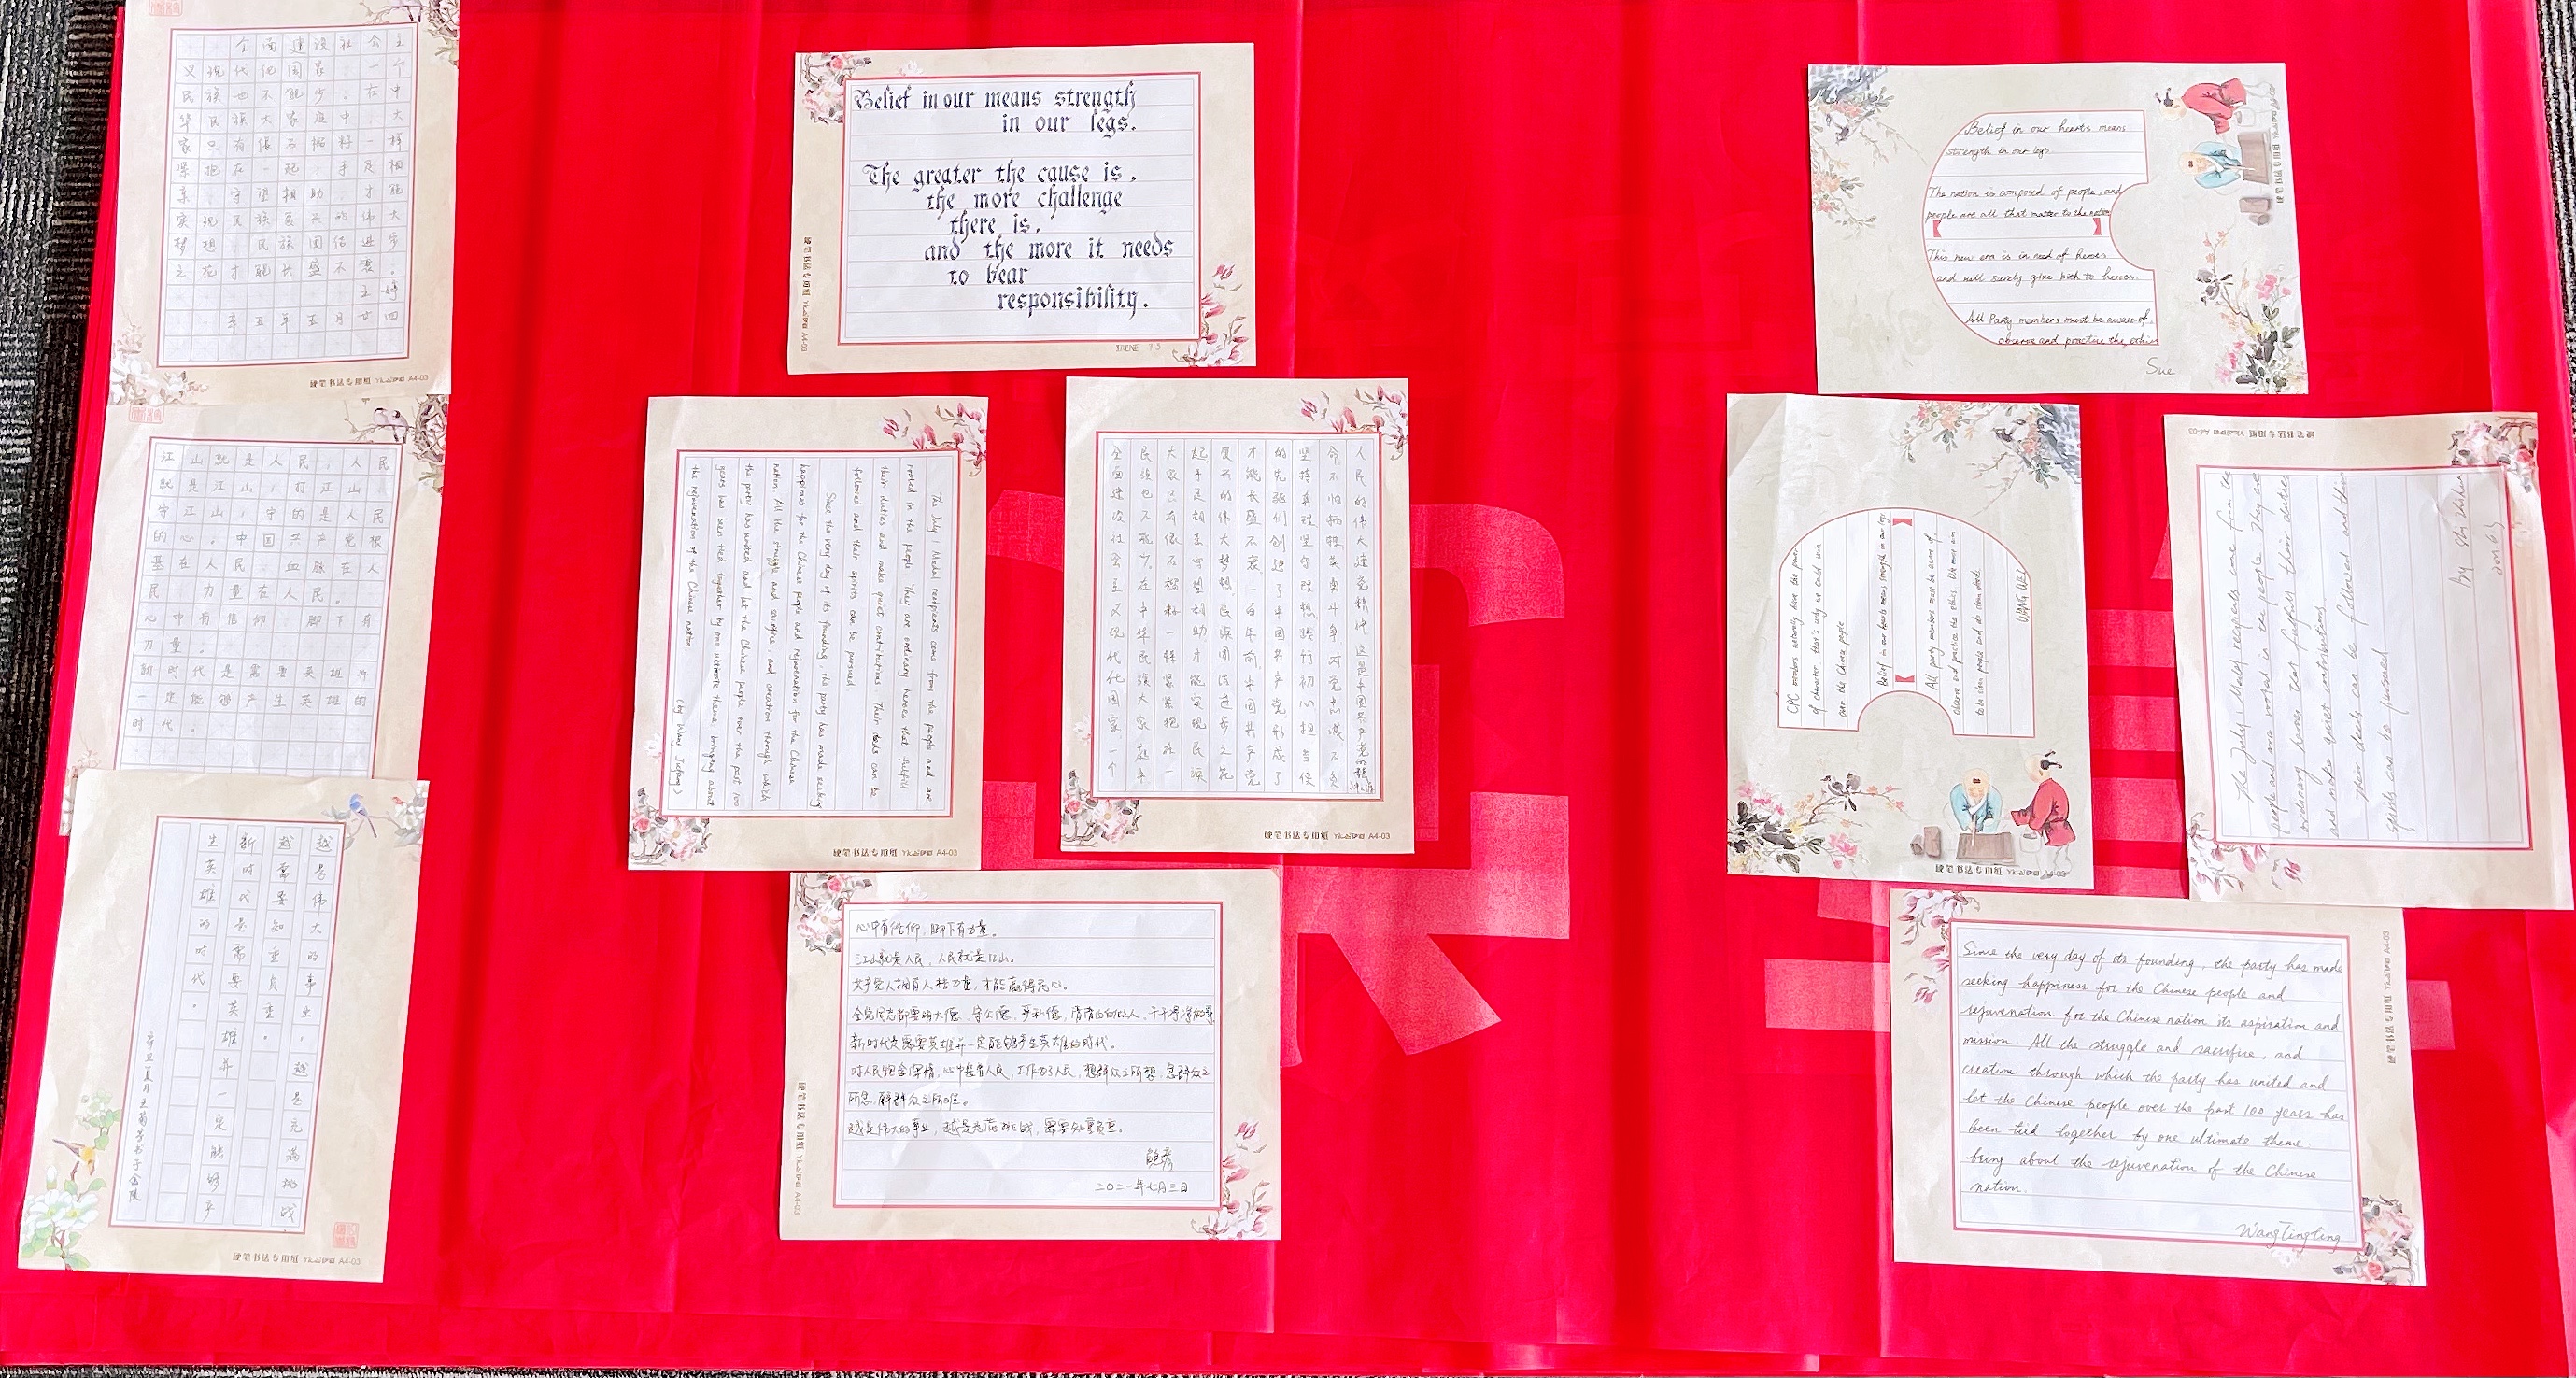 全面建设社会主
义现代化国家，一个
民族也不能少。在中
华民族大家庭中，大
家只有像石榴籽一样
紧抱在一起，手足相
亲、守望相助，才能
实现民族复兴的伟大
梦想，民族团结进步
之花才能长盛不衰。
王婷
辛丑年五月廿四
硬笔书法专用纸 A4-03
江山就是人民，人民
就是江山，打江山、
守江山，守的是人民
的心。中国共产党根
基在人民、血脉在人
民、力量在人民。
心中有信仰，脚下有
力量。
新时代是需要英雄并
一定能够产生英雄的
时代。
越是伟大的事业，越是充满挑战，
越需要知重负重。
新时代是需要英雄并一定能够产
生英雄的时代。
硬笔书法专用纸 A4-03
Belief in our means strength
in our legs.
The greater the cause is,
the more challenge
there is,
and the more it needs
to bear
responsibility.
IRENE 7.3
硬笔书法专用纸 A4-03
The July 1 Medal recipients come from the people and are
rooted in the people. They are ordinary heroes that fulfill
their duties and make quiet contributions. Their deeds can be
followed and their spirits can be pursued
Since the very day of its founding, the party has made seeking
happiness for the Chinese people and rejuvenation for the Chinese
nation. All the struggle and sacrifice, and creation through which
the party has united and let the Chinese people over the past 100
years has been tied together by one ultimate theme: bringing about
the rejuvenation of the Chinese nation
(by Wang Jufang)
硬笔书法专用纸 A4-03
人民的伟大建党精神，这是中国共产党的精神
命、不怕牺牲英勇斗争、对党忠诚、不负
坚持真理、坚守理想，践行初心、担当使
的先驱们创建了中国共产党，形成了
才能长盛不衰。一百年前，中国共产党
复兴的伟大梦想，民族团结进步之花
起，手足相亲、守望相助，才能实现民族
大家只有像石榴籽一样紧紧抱在一
民族也不能少。在中华民族大家庭中
全面建设社会主义现代化国家，一个
硬笔书法专用纸 A4-03
心中有信仰，脚下有力量。
江山就是人民，人民就是江山。
共产党人拥有人格力量，才能赢得民心。
全党同志都要明大德、守公德、严私德，清清白白做人，干干净净做事
新时代是需要英雄并一定能够产生英雄的时代。
对人民饱含深情，心中装有人民，工作为了人民，想群众之所想，急群众之
所急，解群众之所难。
越是伟大的事业，越是充满挑战，需要知重负重。
二〇二一年七月三日
硬笔书法专用纸 A4-03
Belief in our hearts means
strength in our legs
The nation is composed of people, and
people are all that matter to the nation
This new era is in need of heroes
and will surely give birth to heroes.
All Party members must be aware of,
observe and practise the ethics
Sue
硬笔书法专用纸 A4-03
CPC members naturally have the power
of character, that's why we could win
our the Chinese people
Belief in our hearts means strength in our legs
All party members must be aware of
observe and practise the ethics. We must aim
to be clean people and do clean deeds.
WANG WEI
硬笔书法专用纸 A4-03
The July 1 Medal recipients come from the
people and are rooted in the people. They are
ordinary heroes that fulfill their duties
and make quiet contributions.
Their deeds can be followed and their
spirits can be pursued
硬笔书法专用纸 A4-03
Since the very day of its founding, the party has made
seeking happiness for the Chinese people and
rejuvenation for the Chinese nation its aspiration and
mission. All the struggle and sacrifice, and
creation through which the party has united and
let the Chinese people over the past 100 years has
been tied together by one ultimate theme:
bring about the rejuvenation of the Chinese
nation.
Wang Ting Ting
硬笔书法专用纸 A4-03